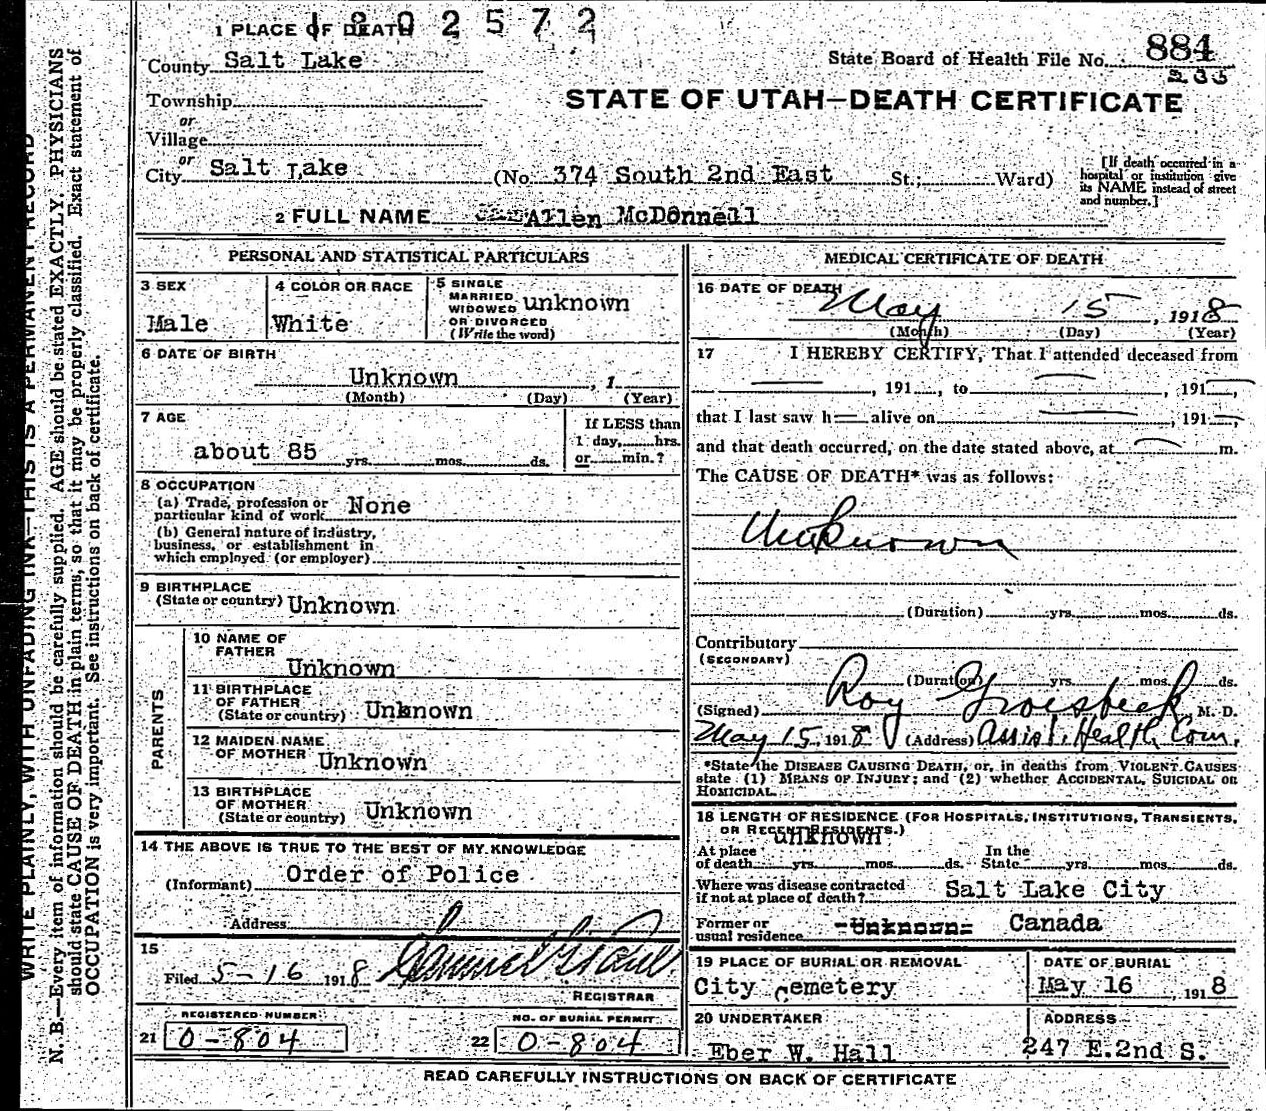 1802572
1 PLACE OF DEATH
County Salt Lake
State Board of Health File No. 884
235
Township
STATE OF UTAH—DEATH CERTIFICATE
or
Village
or
City Salt Lake (No. 374 South 2nd East St.; Ward)
[If death occurred in a hospital or institution give its NAME instead of street and number.]
2 FULL NAME Allen McDonnell
PERSONAL AND STATISTICAL PARTICULARS
3 SEX
Male
4 COLOR OR RACE
White
5 SINGLE
MARRIED
WIDOWED
OR DIVORCED
(Write the word)
unknown
6 DATE OF BIRTH
Unknown , 1
(Month) (Day) (Year)
7 AGE
about 85 yrs. mos. ds.
If LESS than
1 day, hrs.
or min.?
8 OCCUPATION
(a) Trade, profession or
particular kind of work None
(b) General nature of industry,
business, or establishment in
which employed (or employer)
9 BIRTHPLACE
(State or country) Unknown
PARENTS
10 NAME OF
FATHER
Unknown
11 BIRTHPLACE
OF FATHER
(State or country) Unknown
12 MAIDEN NAME
OF MOTHER Unknown
13 BIRTHPLACE
OF MOTHER
(State or country) Unknown
14 THE ABOVE IS TRUE TO THE BEST OF MY KNOWLEDGE
(Informant) Order of Police
Address
15
Filed 5-16 1918
REGISTRAR
REGISTERED NUMBER
21 0-804
NO. OF BURIAL PERMIT
22 0-804
MEDICAL CERTIFICATE OF DEATH
16 DATE OF DEATH
May 15, 1918
(Month) (Day) (Year)
17 I HEREBY CERTIFY, That I attended deceased from
, 191 , to , 191
that I last saw h alive on , 191 ,
and that death occurred, on the date stated above, at m.
The CAUSE OF DEATH* was as follows:
Unknown
(Duration) yrs. mos. ds.
Contributory
(SECONDARY)
(Duration) yrs. mos. ds.
(Signed) Roy Groesbeck, M. D.
May 15, 1918 (Address) Assist. Health Com.
*State the DISEASE CAUSING DEATH, or, in deaths from VIOLENT CAUSES
state (1) MEANS OF INJURY; and (2) whether ACCIDENTAL, SUICIDAL OR
HOMICIDAL.
18 LENGTH OF RESIDENCE (FOR HOSPITALS, INSTITUTIONS, TRANSIENTS,
OR RECENT RESIDENTS.)
unknown
At place
of death yrs. mos. ds.
In the
State yrs. mos. ds.
Where was disease contracted
if not at place of death? Salt Lake City
Former or
usual residence Unknown Canada
19 PLACE OF BURIAL OR REMOVAL
City Cemetery
DATE OF BURIAL
May 16 , 1918
20 UNDERTAKER
Eber W. Hall
ADDRESS
247 E.2nd S.
READ CAREFULLY INSTRUCTIONS ON BACK OF CERTIFICATE
WRITE PLAINLY, WITH UNFADING INK—THIS IS A PERMANENT RECORD
N. B.—Every item of information should be carefully supplied. AGE should be stated EXACTLY. PHYSICIANS
should state CAUSE OF DEATH in plain terms, so that it may be properly classified. Exact statement of
OCCUPATION is very important. See instructions on back of certificate.